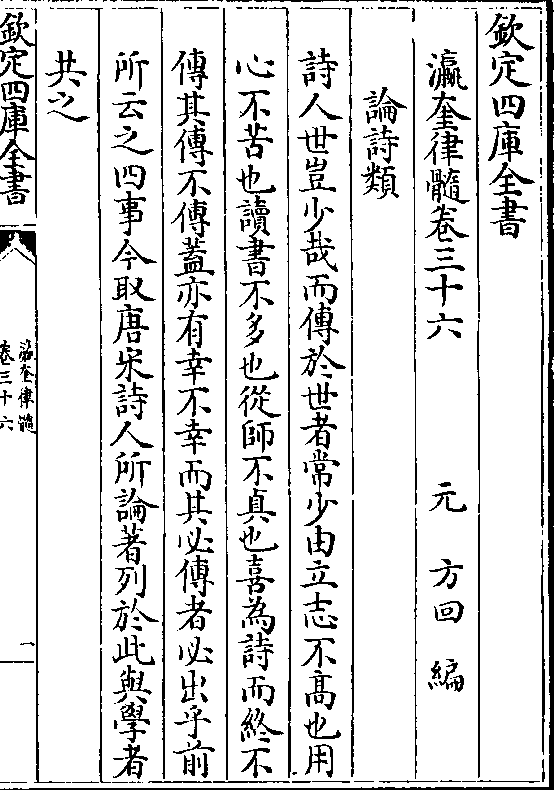 欽定四庫全書
瀛奎律髓卷三十六　元　方回　編
論詩類
詩人世豈少哉而傳於世者常少由立志不髙也用
心不苦也讀書不多也從師不真也喜為詩而終不
傳其傳不傳蓋亦有幸不幸而其必傳者必出乎前
所云之四事今取唐宋詩人所論著列於此與學者
共之
欽定四庫全書
瀛奎律髓
卷三十六
一